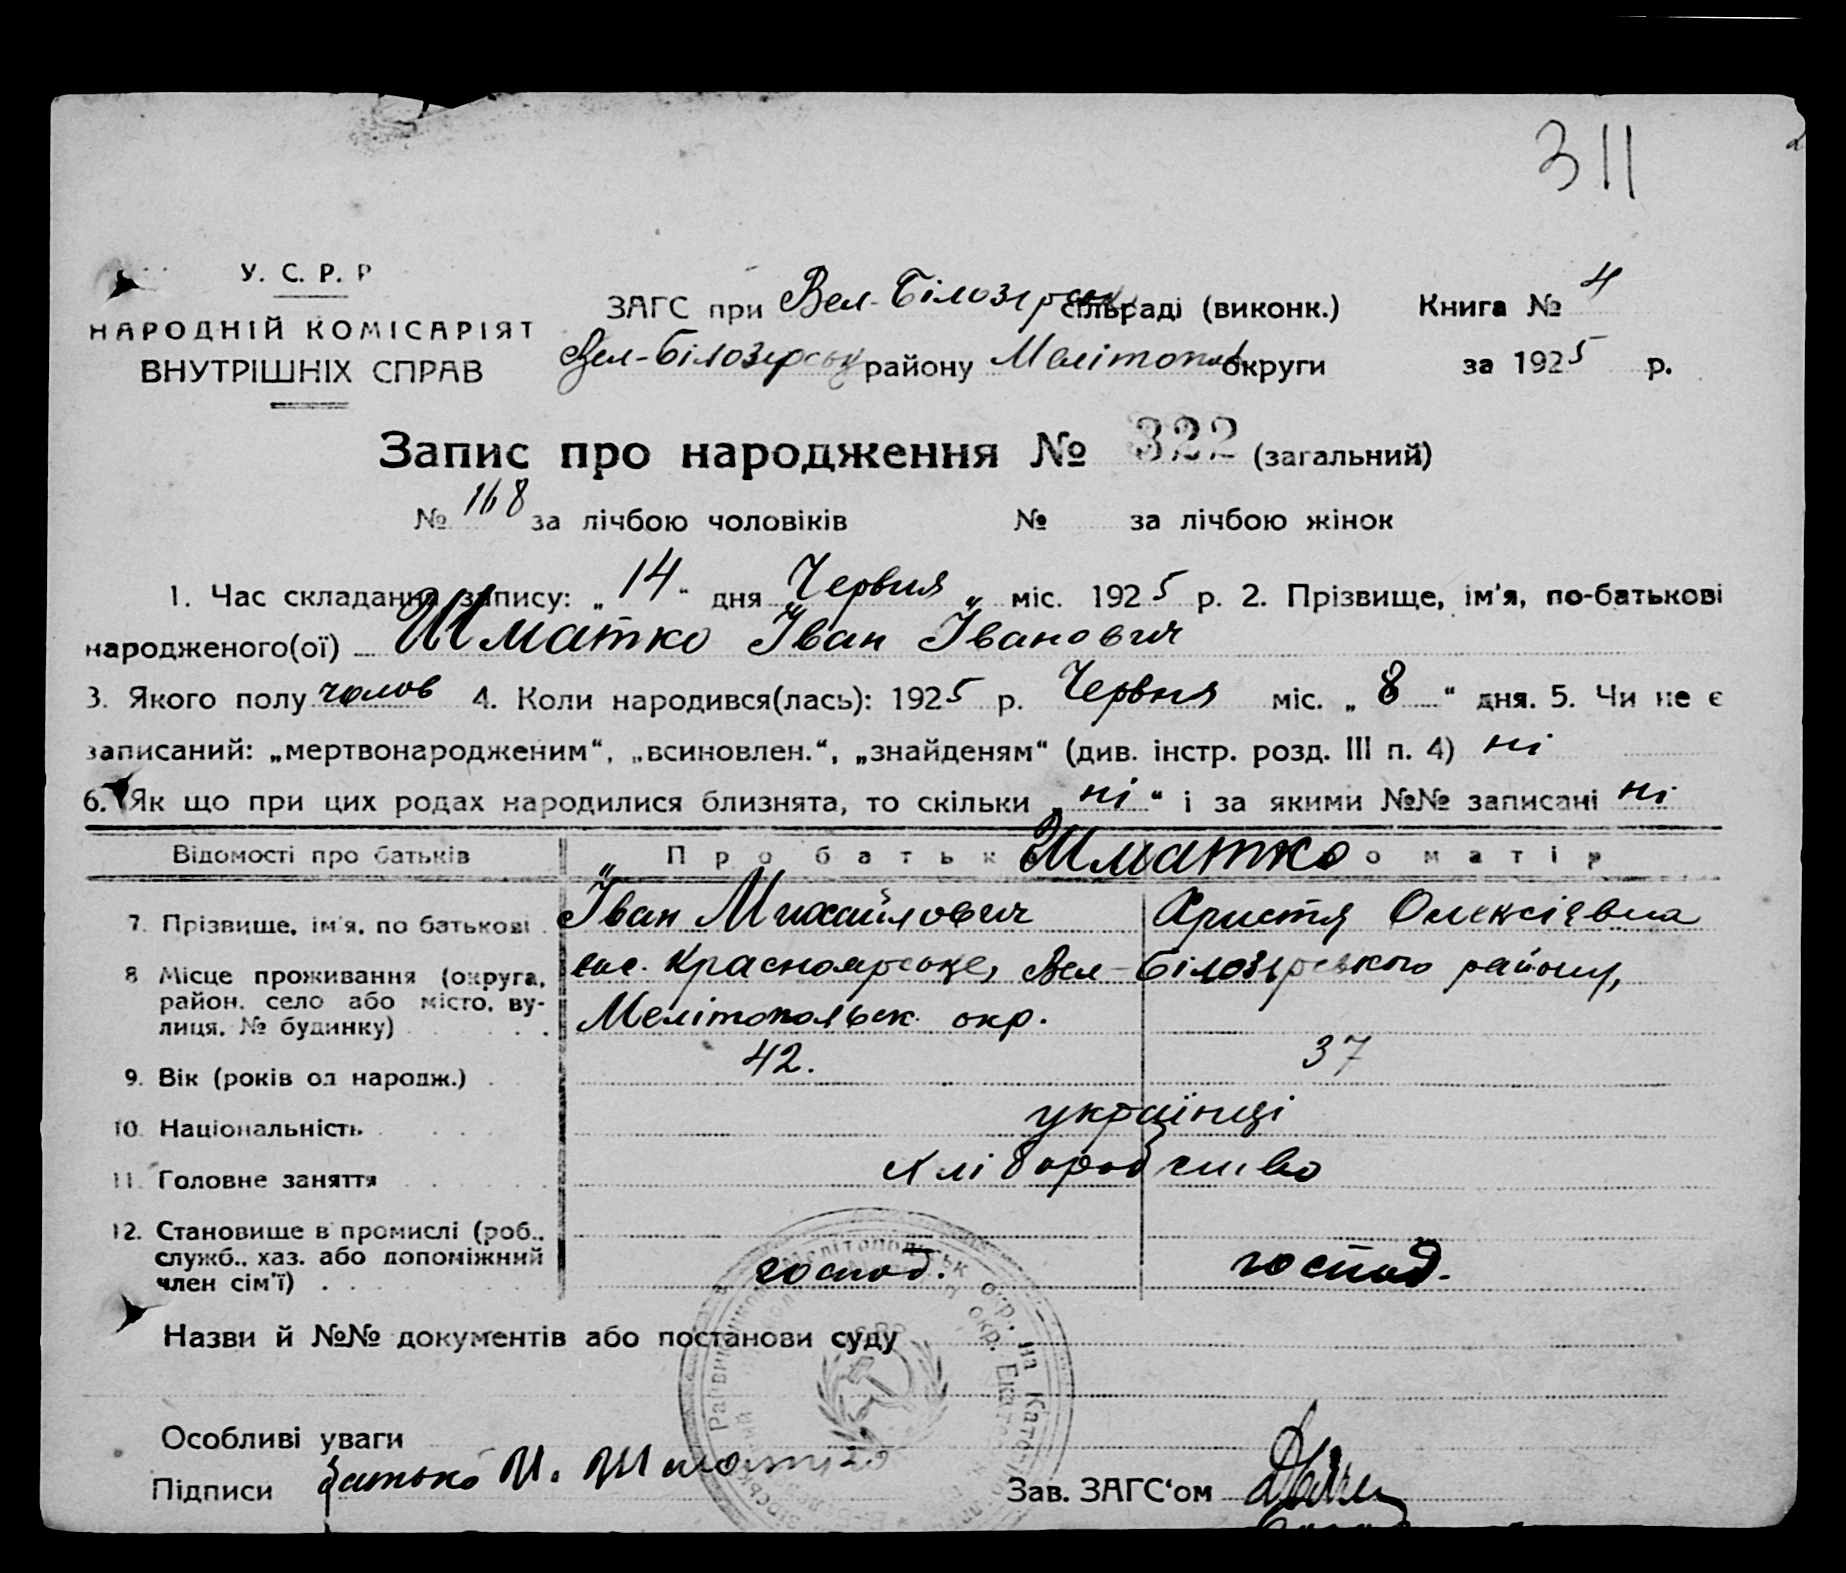 311
У. С. Р. Р
НАРОДНІЙ КОМІСАРІЯТ
ВНУТРІШНІХ СПРАВ
ЗАГС при Вел-Білозірськ сільраді (виконк.) Книга № 4
Вел-Білозірськ району Мелітопол округи за 1925 р.
Запис про народження № 322 (загальний)
№ 168 за лічбою чоловіків № за лічбою жінок
1. Час складання запису: „14“ дня „Червня„ міс. 1925 р. 2. Прізвище, ім'я, по-батькові
народженого(ої) Шматко Іван Іванович
3. Якого полу чолов 4. Коли народився(лась): 1925 р. Червня міс. „8“ дня. 5. Чи не є
записаний: „мертвонародженим“, „всиновлен.“, „знайденям“ (див. інстр. розд. III п. 4) ні
6. Як що при цих родах народилися близнята, то скільки „ні“ і за якими №№ записані ні
Відомості про батьків Про батьк Шматко о матір
7. Прізвище, ім'я, по батькові Іван Михайлович Христя Олексіявна
8 Місце проживання (округа, район, село або місто, ву-лиця, № будинку) сел. Красноярське, Вел-Білозірського району,
Мелітопольск окр.
9. Вік (років од народж.) 42. 37
10. Національність українці
11. Головне заняття хліборобство
12. Становище в промислі (роб.,
служб., хаз. або допоміжний
член сім'ї) господ. господ.
Назви й №№ документів або постанови суду
Особливі уваги
Підписи батько И. Шматко Зав. ЗАГС'ом